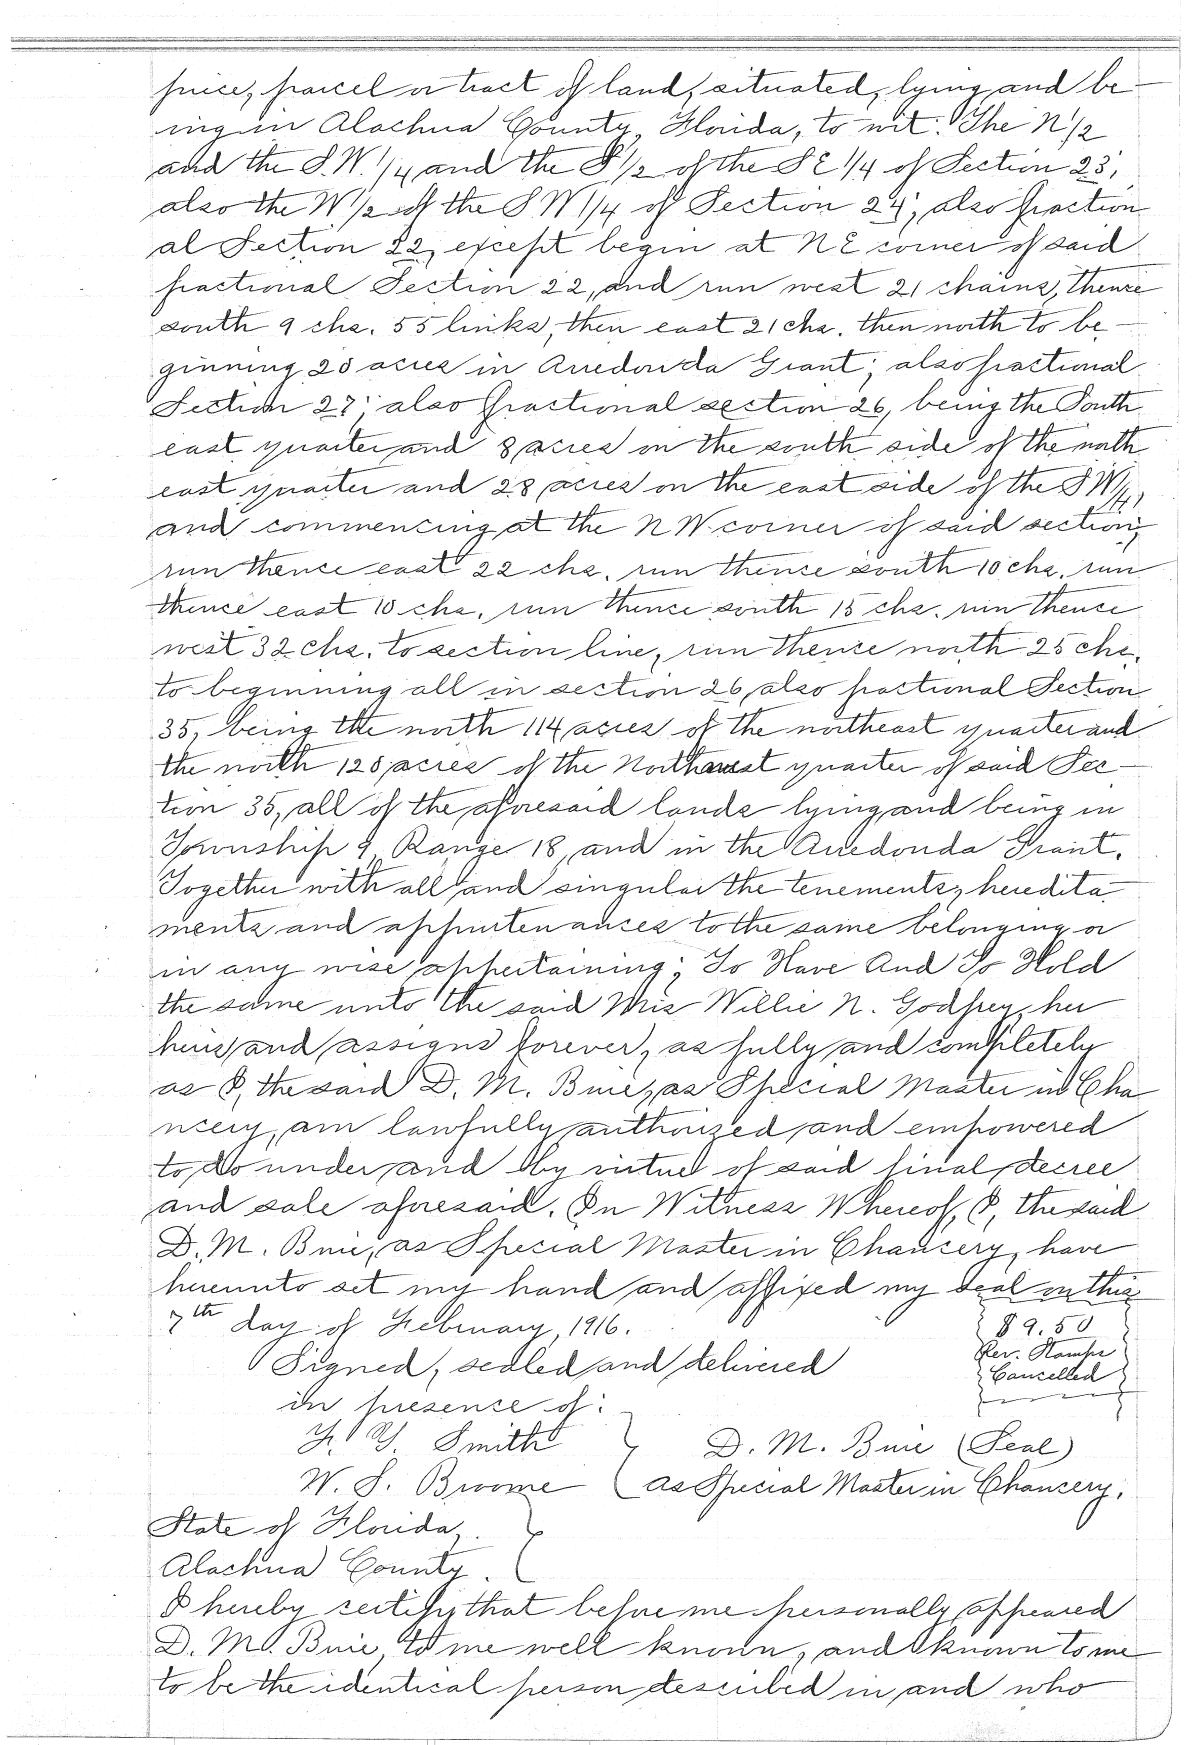 piece, parcel or tract of land, situated, lying and be-
ing in Alachua County, Florida, to wit: The N 1/2
and the S.W. 1/4 and the S 1/2 of the SE 1/4 of Section 23,
also the W 1/2 of the SW 1/4 of Section 24; also fraction
al Section 22, except begin at NE corner of said
fractional Section 22, and run west 21 chains, thence
south 9 chs. 55 links, then east 21 chs. then north to be-
ginning 20 acres in Arredonda Grant; also fractional
Section 27; also fractional section 26, being the South
east quarter and 8 acres on the south side of the north
east quarter and 28 acres on the east side of the SW 1/4,
and commencing at the NW corner of said section,
run thence east 22 chs. run thence south 10 chs. run
thence east 10 chs. run thence south 15 chs. run thence
west 32 chs. to section line, run thence north 25 chs.
to beginning all in section 26, also fractional Section
35, being the north 114 acres of the northeast quarter and
the north 128 acres of the Northwest quarter of said Sec-
tion 35, all of the aforesaid lands lying and being in
Township 9 Range 18, and in the Arredonda Grant.
Together with all and singular the tenements, heredita
ments and appurtenances to the same belonging or
in any wise appertaining; To Have And To Hold
the same unto the said Mrs Willie N. Godfrey, her
heirs and assigns forever, as fully and completely
as I, the said D. M. Buie, as Special Master in Cha
ncery, am lawfully authorized and empowered
to do under and by virtue of said final decree
and sale aforesaid. In Witness Whereof, I, the said
D. M. Buie, as Special Master in Chancery, have
hereunto set my hand and affixed my seal on this
7th day of February, 1916.
$9.50
Rev. Stamps
Cancelled
Signed, sealed and delivered
in presence of:
Smith
D. M. Buie (Seal)
W. S. Broome
as Special Master in Chancery.
State of Florida,
Alachua County.
I hereby certify that before me personally appeared
D. M. Buie, to me well known, and known to me
to be the identical person described in and who